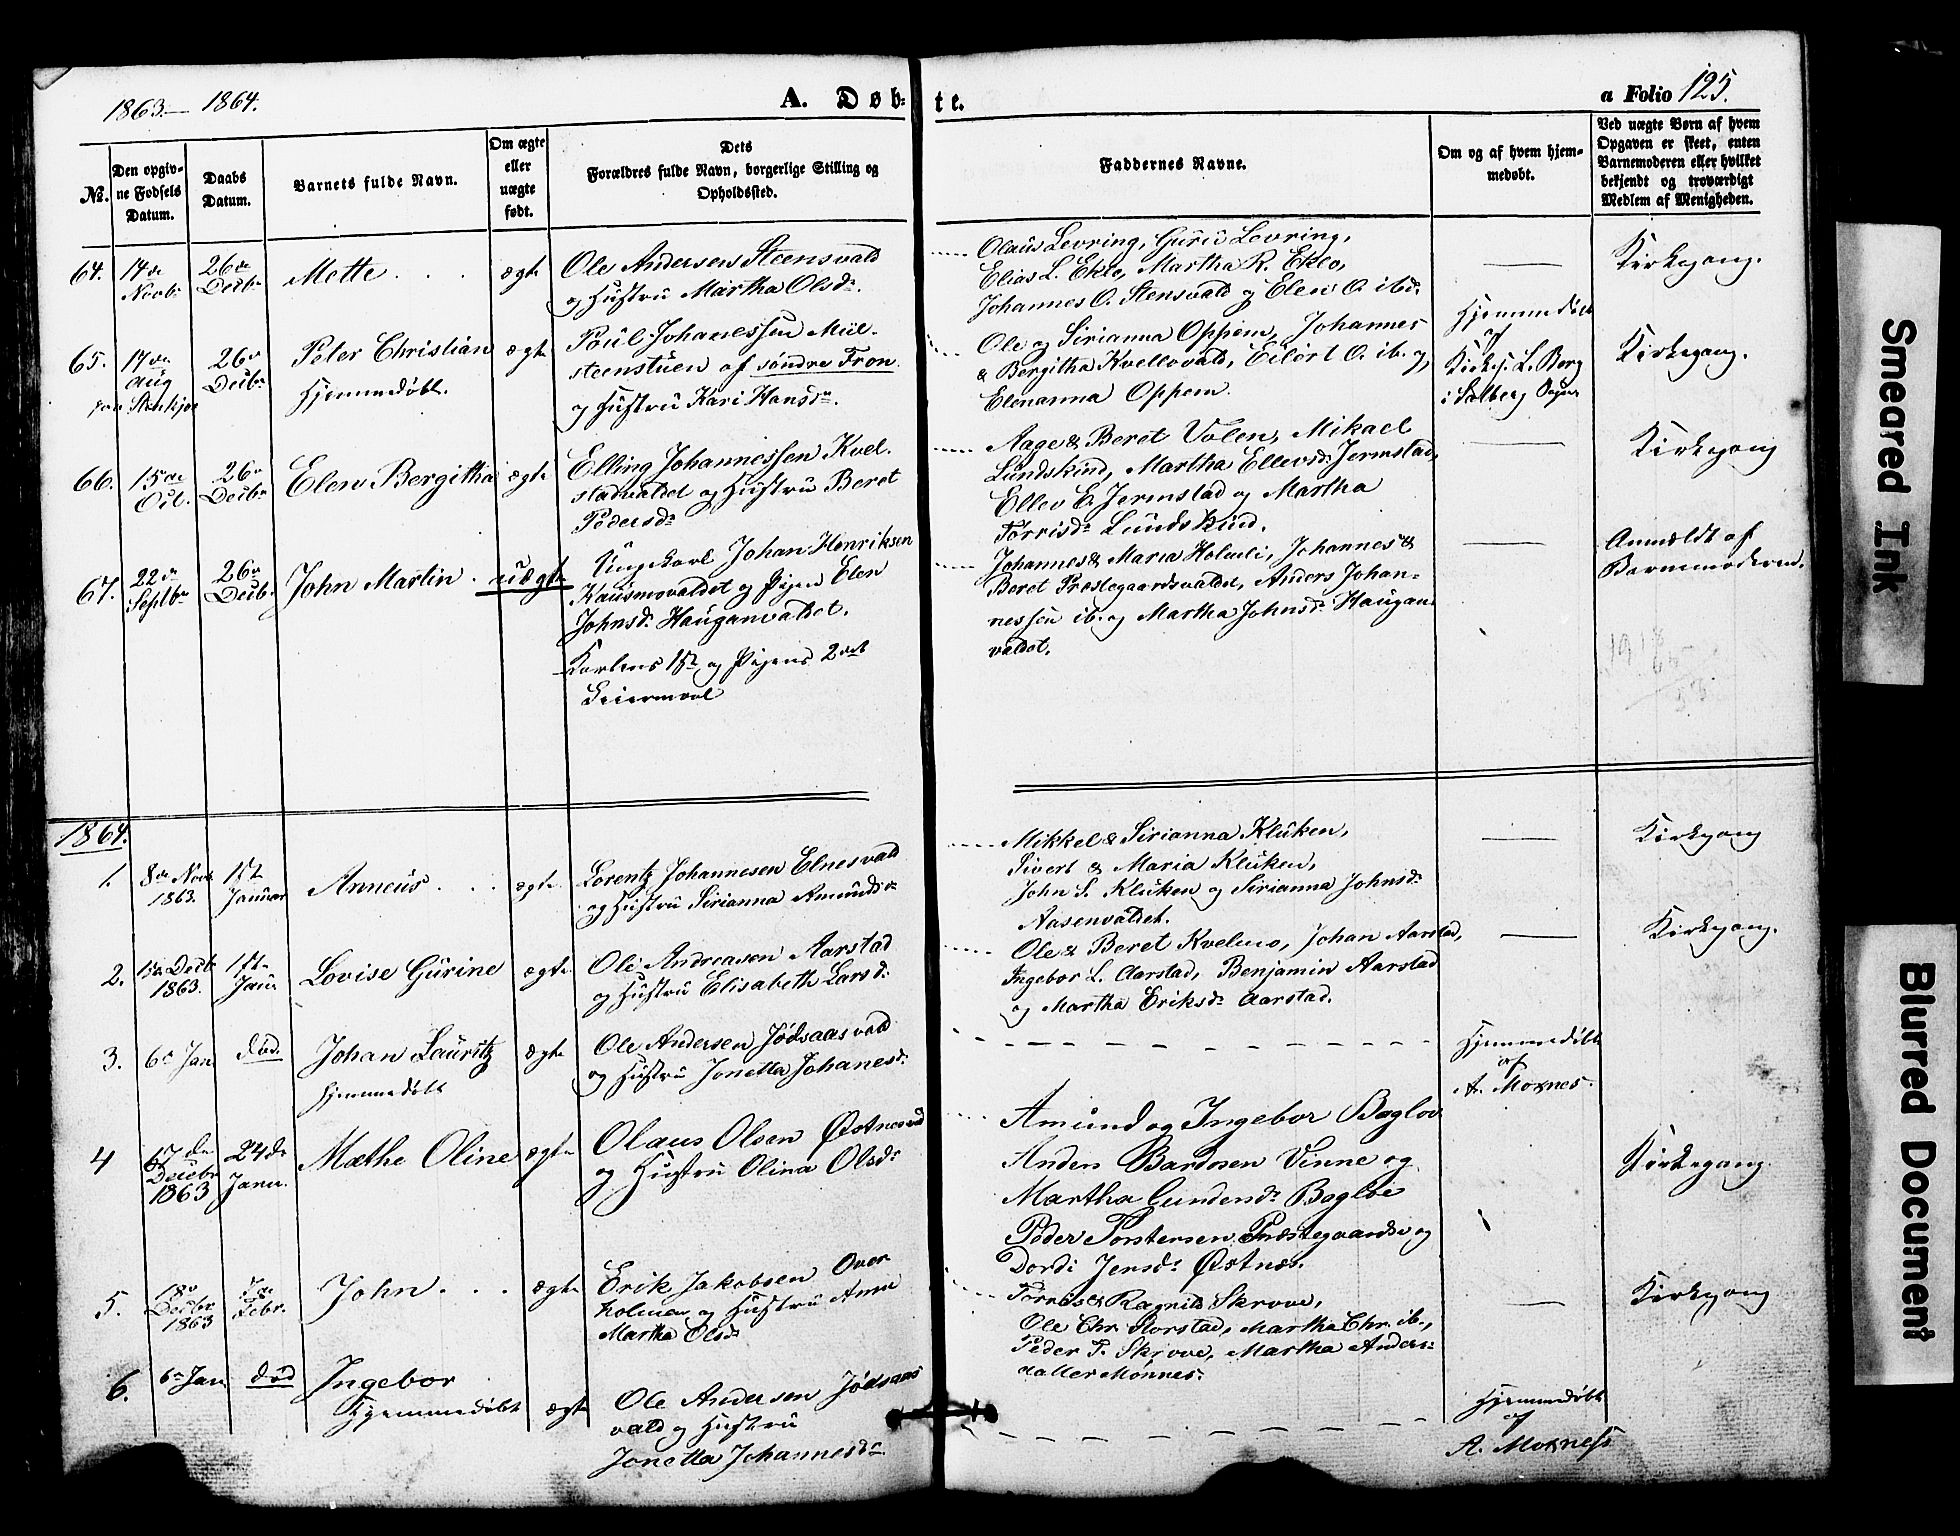 1863 — 1864.
A. Døb-
te.
a Folio 125.
№.
Den opgiv-
ne Fødsels
Datum.
Daabs
Datum.
Barnets fulde Navn.
Om ægte
eller
uægte
født.
Dets
Forældres fulde Navn, borgerlige Stilling og
Opholdssted.
Faddernes Navne.
Om og af hvem hjem-
medøbt.
Ved uægte Børn af hvem
Opgaven er skeet, enten
Barnemoderen eller hvilket
bekjendt og troværdigt
Medlem af Menigheden.
64.
14de
Novbr
26de
Decbr
Mette
ægte
Ole Andersen Steensvald
og Hustru Martha Olsdr.
Olaus Levring, Guru Levring,
Elias L. Eklo, Martha R. Eklo,
Johannes O. Stensvald og Elen O. ibd.
Kirkegang.
65.
17de
Aug
Stenkjær
26de
Decbr
Peter Christian
Hjemmedøbt.
ægte
Poul Johanessen Mül-
steenstuen af søndre Fron
og Hustru Kari Hansdr.
Ole og Sirianna Oppem, Johannes
& Bergitha Kvellovald, Eilert O. ib. og
Elenanna Oppem.
Hjemmedøbt
af
Kirkes. L. Berg
i Salberg Sogn
Kirkegang.
66.
15de
Oct.
26de
Decbr
Elen Bergitha
ægte
Elling Johannessen Kvel-
stadvaldet og Hustru Beret
Pedersdr
Aage & Beret Volen, Mikael
Lundskind, Martha Ellevsdr Jermstad,
Ellev E. Jermstad og Martha
Torrisdr Lundskind.
Kirkegang
67.
22de
Septbr
26de
Decbr.
John Martin
uægte
Ungkarl Johan Henriksen
Kausmovaldet og Pigen Elen
Johnsdr Hauganvaldet.
Karlens 1ste og Pigens 2det
Leiermaal
Johannes & Maria Holmli, Johannes &
Beret Præstegaardsvaldet, Anders Johan-
nessen ib. og Martha Johnsdr Haugan-
valdet.
Anmeldt af
Barnemoderen.
1864.
1.
8de Novbr
1863.
1ste
Januar
Anneus
ægte
Lorentz Johannesen Elnesvald
og Hustru Sirianna Amundsdr
Mikkel & Sirianna Klüken,
Sivert & Maria Klüken,
John S. Klüken og Sirianna Johnsdr
Aasenvaldet.
Kirkegang
2.
Decbr
1863.
1ste
Jan.
Lovise Gurine
ægte
Ole Andreasen Aarstad
og Hustru Elisabeth Larsdr
Ole & Beret Kvelmo, Johan Aarstad,
Ingebor L. Aarstad, Benjamin Aarstad
og Martha Eriksdr Aarstad.
Kirkegang.
3.
6te Jan
død.
Johan Lauritz
Hjemmedøbt
ægte
Ole Andersen Jødsaasvald
og Hustru Jonetta Johanesdr
Hjemmedøbt
af
A. Moxnes.
4
17de
Decbr
1863
24de
Janu.
Mæthe Oline
ægte
Olaus Olsen Østnesvald
og Hustru Olina Olsdr
Amund og Ingebor Bagloe
Anders Bardosen Vinne og
Martha Gundersdr Bagloe
Peder Torstensen Præstegaards og
Dordi Jensdr Østnes.
Kirkegang.
5.
18de
Decbr
1863
Febr.
John
ægte
Erik Jakobsen Over
holmen og Hustru Anne
Martha Olsdr
Torris & Ragnild Skrove,
Ole Chr. Storstad, Martha Chr. ib.,
Peder T. Skrove, Martha Anders-
datter Monnes.
Kirkegang
6.
6te Jan
død
Ingebor
Hjemmedøbt
ægte
Ole Andersen Jødsaas
vald og Hustru
Jonetta Johannesdr
Hjemmedøbt
af
A. Moxness
Smeared Ink
Blurred Document